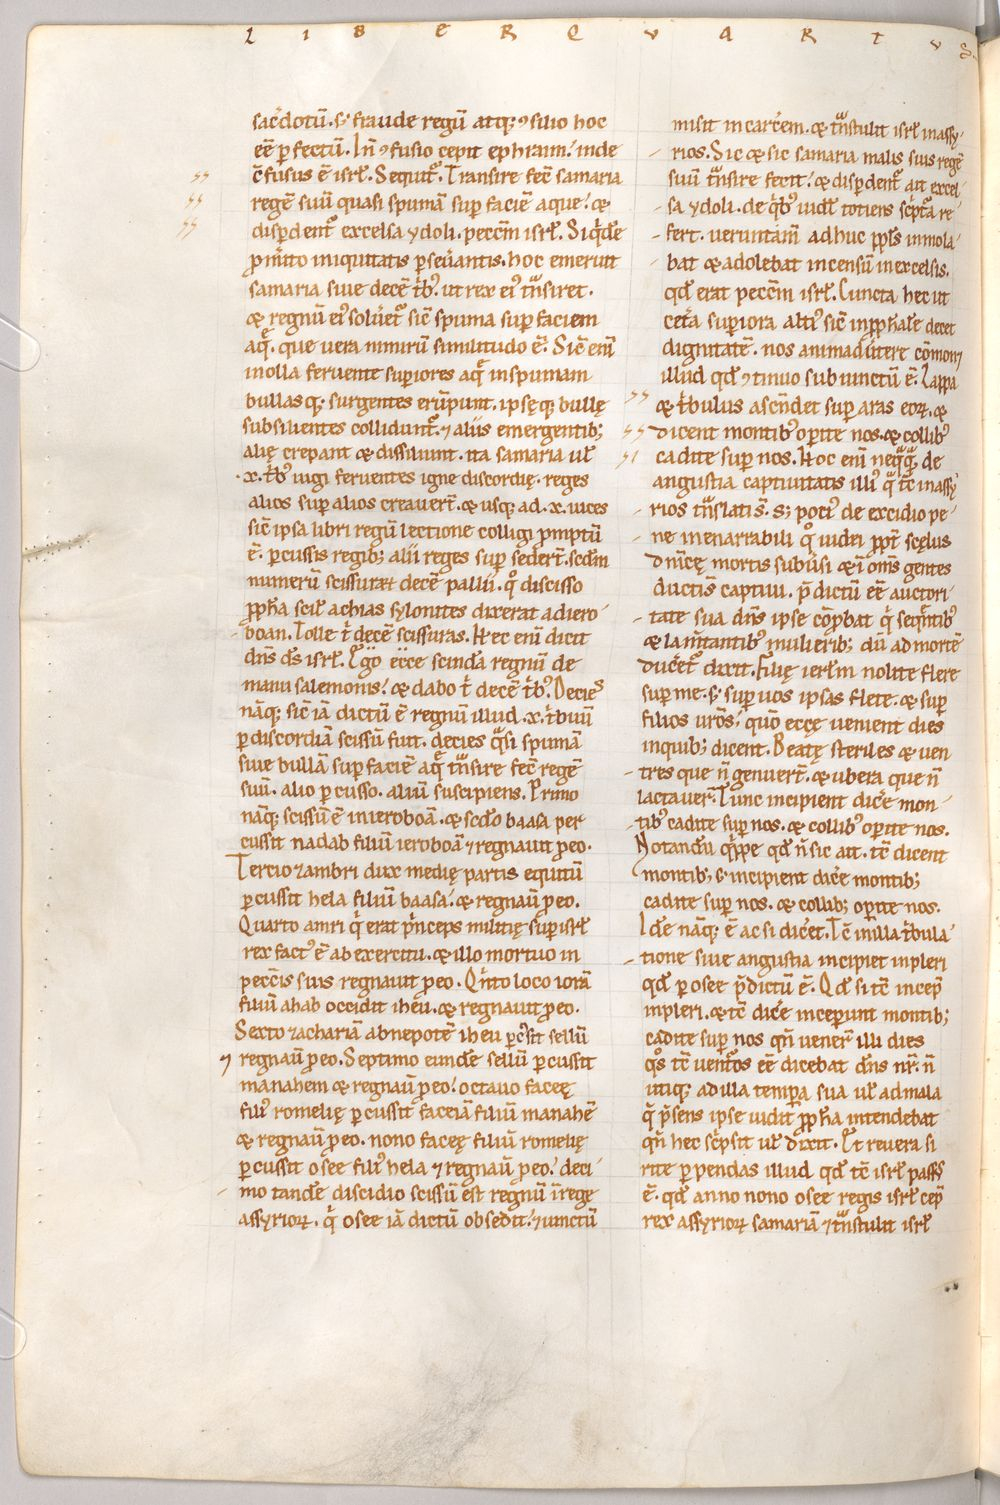 L I B E R Q V A R T V S
sac̄dotū. s; fraude regū atq; ꝯsilio hoc
eē ꝑfectū. In̄ ꝯfusio cepit ephraim. inde
ꝯfusus ē isrl̄. Sequit᷑. Transire fec̄ samaria
regē suū quasi spumā sup faciē aque. &
disꝑdent᷑ excelsa ydoli. pecc̄m isrl̄. Siq̇dē
ꝓ merito iniquitatis ꝑseūantis. hoc emeruit
samaria siue decē tͥbꝰ. ut rex eiꝰ tͣnsiret.
& regnū eiꝰ soluet᷑ sic̄ spuma sup faciem
aq̄. que uera nimirū similitudo ē. Sic̄ eni̅
in olla feruente superiores aq̄ in spumam
bullasq; surgentes erūpunt. ipsęq; bullę
subsilientes collidunt᷑. ⁊ aliis emergentib;
alię crepant & dissiliunt. ita samaria ul̄
.x. tͥbꝰ iugi feruentes igne discordię. reges
alios sup alios creauer̄t. & usq; ad .x. uices
sic̄ ipsa libri regū lectione colligi ꝓmptū
ē. ꝑcussis regib; alii reges sup seder̄t. scd̄m
numerū scissurarū decē pallii. q̊ discisso
ꝓph̄a scil̄ achias sylonites dixerat ad iero-
boam. Tolle tͥ decē scissuras. Hec eni̅ dicit
dn̄s ds̄ isrl̄. Ego ecce scindā regnū de
manu salemonis. & dabo tͥ decē tͥbꝰ. Decies
nāq; sic̄ iā dictū ē regnū illud .x. tͥbuū
ꝑ discordiā scissū fuit. decies qͣsi spumā
siue bullā sup faciē aq̄ tͣnsire fec̄ regē
suū. alio ꝑcusso. aliū suscipiens. Primo
nāq; scissū ē in ieroboā. & scd̄o baasa per
cussit nadab filiū ieroboā ⁊ regnauit ꝓ eo.
Tercio zambri dux medię partis equitū
ꝑcussit hela filiū baasa. & regnauit ꝓ eo.
Quarto amri q̇ erat pͥnceps militię sup isrl̄
rex factꝰ ē ab exercitu. & illo mortuo in
pecc̄is suis regnauit ꝓ eo. Qͥnto loco iorā
filiū ahab occidit iheu. & regnauit ꝓ eo.
Sexto zachariā abnepotē iheu ꝑc̄sit sellū
⁊ regnauit ꝓ eo. Septimo eundē sellū ꝑcussit
manahem & regnauit ꝓ eo. octauo faceę
filiꝰ romelię ꝑcussit faceiā filiū manahē
& regnauit ꝓ eo. nono faceę filiū romelię
ꝑcussit osee filiꝰ hela ⁊ regnauit ꝓ eo. deci-
mo tandē discidio scissū est regnū in rege
assyrioꝝ. q̇ osee iā dictū obsedit. ⁊ uinctū
misit in carcerem. & tͣnstulit isrl̄ in assy-
rios. Sic & sic samaria malis suis regē
suū tͣnsire fecit. & disꝑdent᷑ ait excel-
sa ydoli. de qͥbꝰ uidel̄ totiens scͥptͣa re-
fert. ueruntam̄ adhuc ppl̄s inmola-
bat & adolebat incensū in excelsis.
qd̄ erat pecc̄m isrl̄. Cuncta hec ut
cet̄a superiora altiꝰ sic̄ in ꝓph̄ale decet
dignitatē. nos animaduertere cōmoni
illud qd̄ ꝯtinuo subiunctū ē. Lappa
& tͥbulus ascendet sup aras eoꝝ. &
dicent montibꝰ operite nos. & collibꝰ
cadite sup nos. Hoc eni̅ neqͣqͣ; de
angustia captiuitatis illiꝰ qͣ tc̄ in assy-
rios tͣnslati s̄. s; potiꝰ de excidio pe-
ne inenarrabili q̊ iudei ppt̄ scęlus
dn̄icę mortis subūsi & ī om̄s gentes
ducti s̄ captiui. p̄dictū eē auctori-
tate sua dn̄s ipse cōꝓbat q̇ seqn̄tibꝰ
& lam̄tantibꝰ mulierib; dū ad mortē
duceret᷑ dixit. Filię ierl̄m nolite flere
sup me. s; sup uos ipsas flete. & sup
filios uros̄. quō ecce uenient dies
in quib; dicent. Beatę steriles & uen
tres que n̄ genuer̄t. & ubera que n̄
lactauer̄. Tunc incipient dicē mon-
tibꝰ cadite sup nos. & collibꝰ operite nos.
Notandū qͥppe qd̄ n̄ sic ait. tc̄ dicent
montib; s; incipient dicē montib;
cadite sup nos. & collib; operite nos.
Idē nāq; ē ac si dicet. Tc̄ in illa tͥbula-
tione siue angustia incipiet inpleri
qd̄ ꝑ osee p̄dictū ē. Qd̄ si tc̄ incep̄
inpleri. & tc̄ dicē inceperunt montib;
cadite sup nos qn̄ uener̄ illi dies
qͦs tc̄ uenturos eē dicebat dn̄s nr̄. n̄
utiq; ad illa tempa sua ul̄ ad mala
q̄ p̄sens ipse uidit ꝓph̄a intendebat
qn̄ hec scͥpsit ul̄ dixit. Et reuera si
rite ꝑpendas illud qd̄ tc̄ isrl̄ passꝰ
ē. qd̄ anno nono osee regis isrl̄ cep̄
rex assyrioꝝ samariā ⁊ tͣnstulit isrl̄